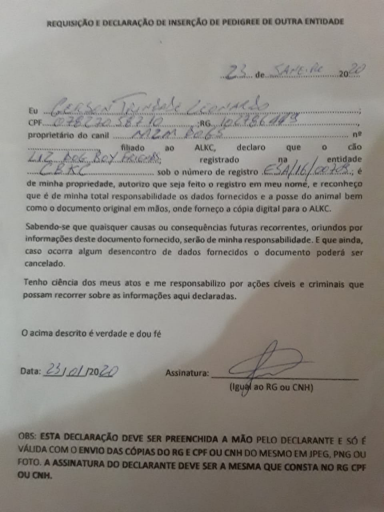 REQUISIÇÃO E DECLARAÇÃO DE INSERÇÃO DE PEDIGREE DE OUTRA ENTIDADE
23 de JANEIRO 2020
Eu GERSON TRINDADE LEONARDO
CPF RG
proprietário do canil MZM DOGS nº
filiado ao ALKC, declaro que o cão
LIZ DOG BOY FRIENDS registrado na entidade
CBKC sob o número de registro ESA/16/00703, é
de minha propriedade, autorizo que seja feito o registro em meu nome, e reconheço
que é de minha total responsabilidade os dados fornecidos e a posse do animal bem
como o documento original em mãos, onde forneço a cópia digital para o ALKC.
Sabendo-se que quaisquer causas ou consequências futuras recorrentes, oriundos por
informações deste documento fornecido, serão de minha responsabilidade. E que ainda,
caso ocorra algum desencontro de dados fornecidos o documento poderá ser
cancelado.
Tenho ciência dos meus atos e me responsabilizo por ações cíveis e criminais que
possam recorrer sobre as informações aqui declaradas.
O acima descrito é verdade e dou fé
Data: 23/01/2020 Assinatura:
(Igual ao RG ou CNH)
OBS: ESTA DECLARAÇÃO DEVE SER PREENCHIDA A MÃO PELO DECLARANTE E SÓ É
VÁLIDA COM O ENVIO DAS CÓPIAS DO RG E CPF OU CNH DO MESMO EM JPEG, PNG OU
FOTO. A ASSINATURA DO DECLARANTE DEVE SER A MESMA QUE CONSTA NO RG CPF
OU CNH.